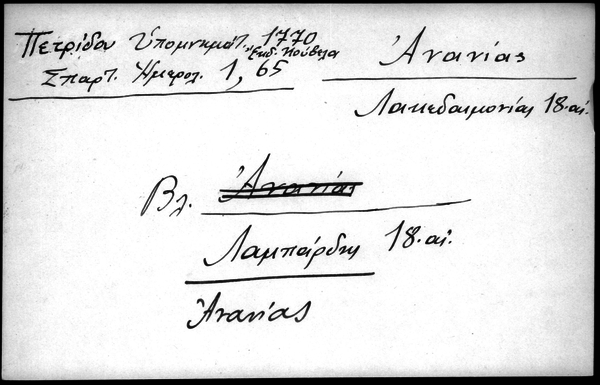 Πετρίδου Ὑπομνηματ. 1770
Ἐκδ. Κούβελα
Σπαρτ. Ἡμερολ. 1, 65
Ἀνανίας
Λακεδαιμονίας 18. αἰ.
Βλ. Ἀνανίας
Λαμπάρδης 18. αἰ.
Ἀνανίας